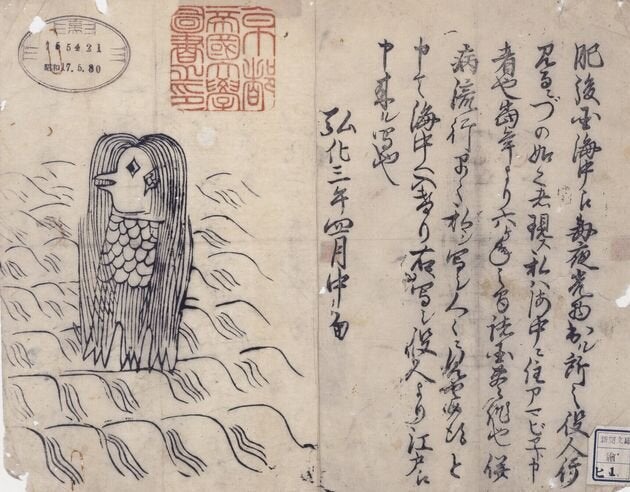 肥後国海中江毎夜光物出ル所之役人行
見るニづの如く者現ス私ハ海中ニ住アマビヱト申
者也当年より六ヶ年之間諸国豊作也併
病流行早々私ヲ写シ人々ニ見せ候得と
申て海中へ入けり右写シ役人より江戸江
申来ル写也
弘化三年四月中旬
京都
帝國大學
圖書之印
165421
昭和17.5.30